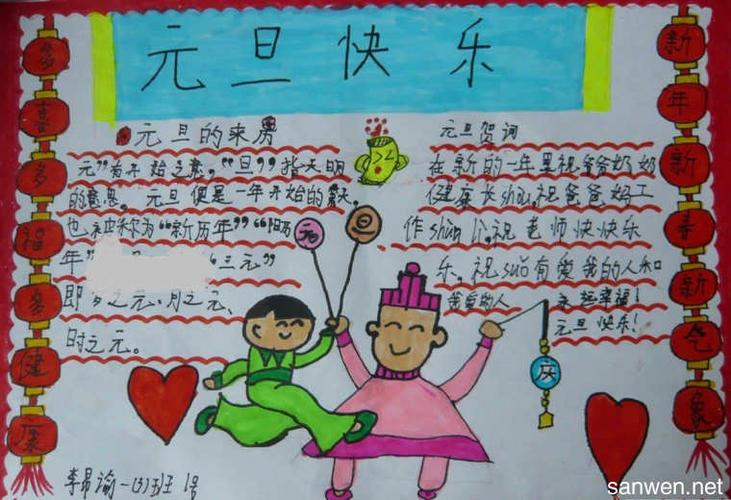 元旦快乐
多喜多福多健康
新年新春新气象
元旦的来历
元”有开始之意，“旦”指天明
的意思。元旦便是一年开始的第一天。
也被称为“新历年”“阳历
年”
“三元”
即岁之元、月之元、
时之元。
元旦贺词
在新的一年里祝爷爷奶奶
健康长shòu，祝爸爸妈工
作shùn lì，祝老师快快乐
乐。祝suǒ有爱我的人和
我爱的人 永远幸福！
元旦快乐！
元
旦
庆
李昂谕一(3)班 1号
sanwen.net